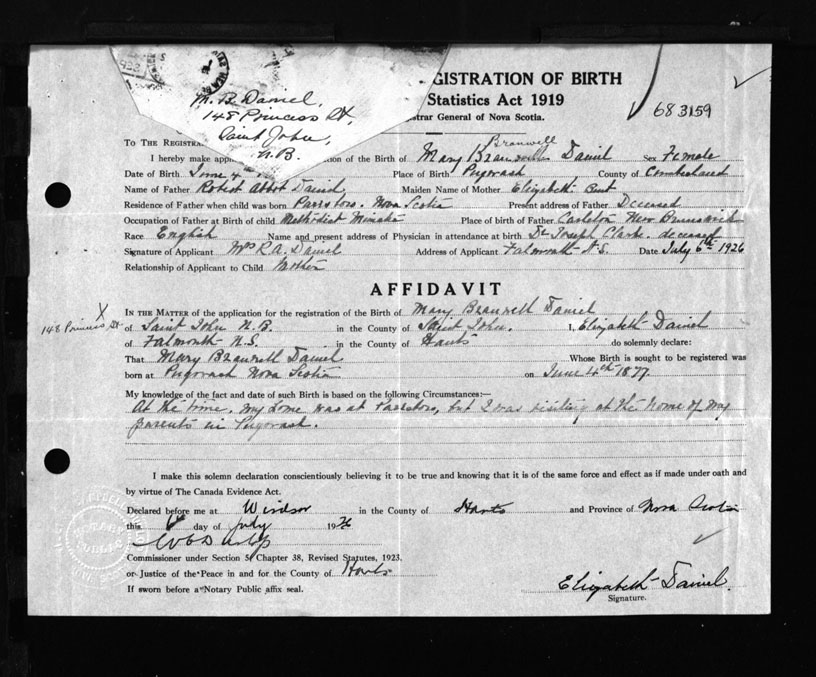 M. B. Daniel,
148 Princess St,
Saint John,
N.B.
GISTRATION OF BIRTH
Statistics Act 1919
strar General of Nova Scotia.
683159
TO THE REGISTRA
Branwell
I hereby make appli ion of the Birth of Mary Daniel Sex Female
Date of Birth June 4th Place of Birth Pugwash County of Cumberland
Name of Father Robert Abbot Daniel Maiden Name of Mother Elizabeth
Residence of Father when child was born Parrsboro. Nova Scotia Present address of Father Deceased
Occupation of Father at Birth of child Methodist Minister Place of birth of Father Carleton New Brunswick
Race English Name and present address of Physician in attendance at birth Dr Joseph Clarke. deceased
Signature of Applicant Mrs R.A. Daniel Address of Applicant Falmouth N.S. Date July 6th 1926
Relationship of Applicant to Child Mother
AFFIDAVIT
IN THE MATTER of the application for the registration of the Birth of Mary Branwell Daniel
X
148 Princess St of Saint John N.B. in the County of Saint John. I, Elizabeth Daniel
of Falmouth N.S. in the County of Hants do solemnly declare:
That Mary Branwell Daniel Whose Birth is sought to be registered was
born at Pugwash Nova Scotia on June 4th 1877.
My knowledge of the fact and date of such Birth is based on the following Circumstances:—
At the time, my home was at Parrsboro, but I was visiting at the home of my
parents in Pugwash.
I make this solemn declaration conscientiously believing it to be true and knowing that it is of the same force and effect as if made under oath and
by virtue of The Canada Evidence Act.
Declared before me at Windsor in the County of Hants and Province of Nova Scotia
this 6 day of July 1926
Commissioner under Section 5, Chapter 38, Revised Statutes, 1923.
or Justice of the Peace in and for the County of Hants
If sworn before a Notary Public affix seal.
Elizabeth Daniel.
Signature.